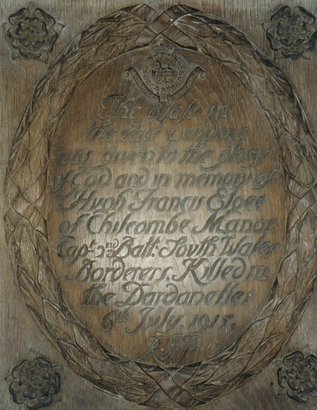 The glass in
the east window
was given to the glory
of God and in memory of
Hugh Francis
of Chilcombe Manor
Capt. 2nd Batt: South Wales
Borderers. Killed in
the Dardanelles
6th July. 1915.
R.I.P.